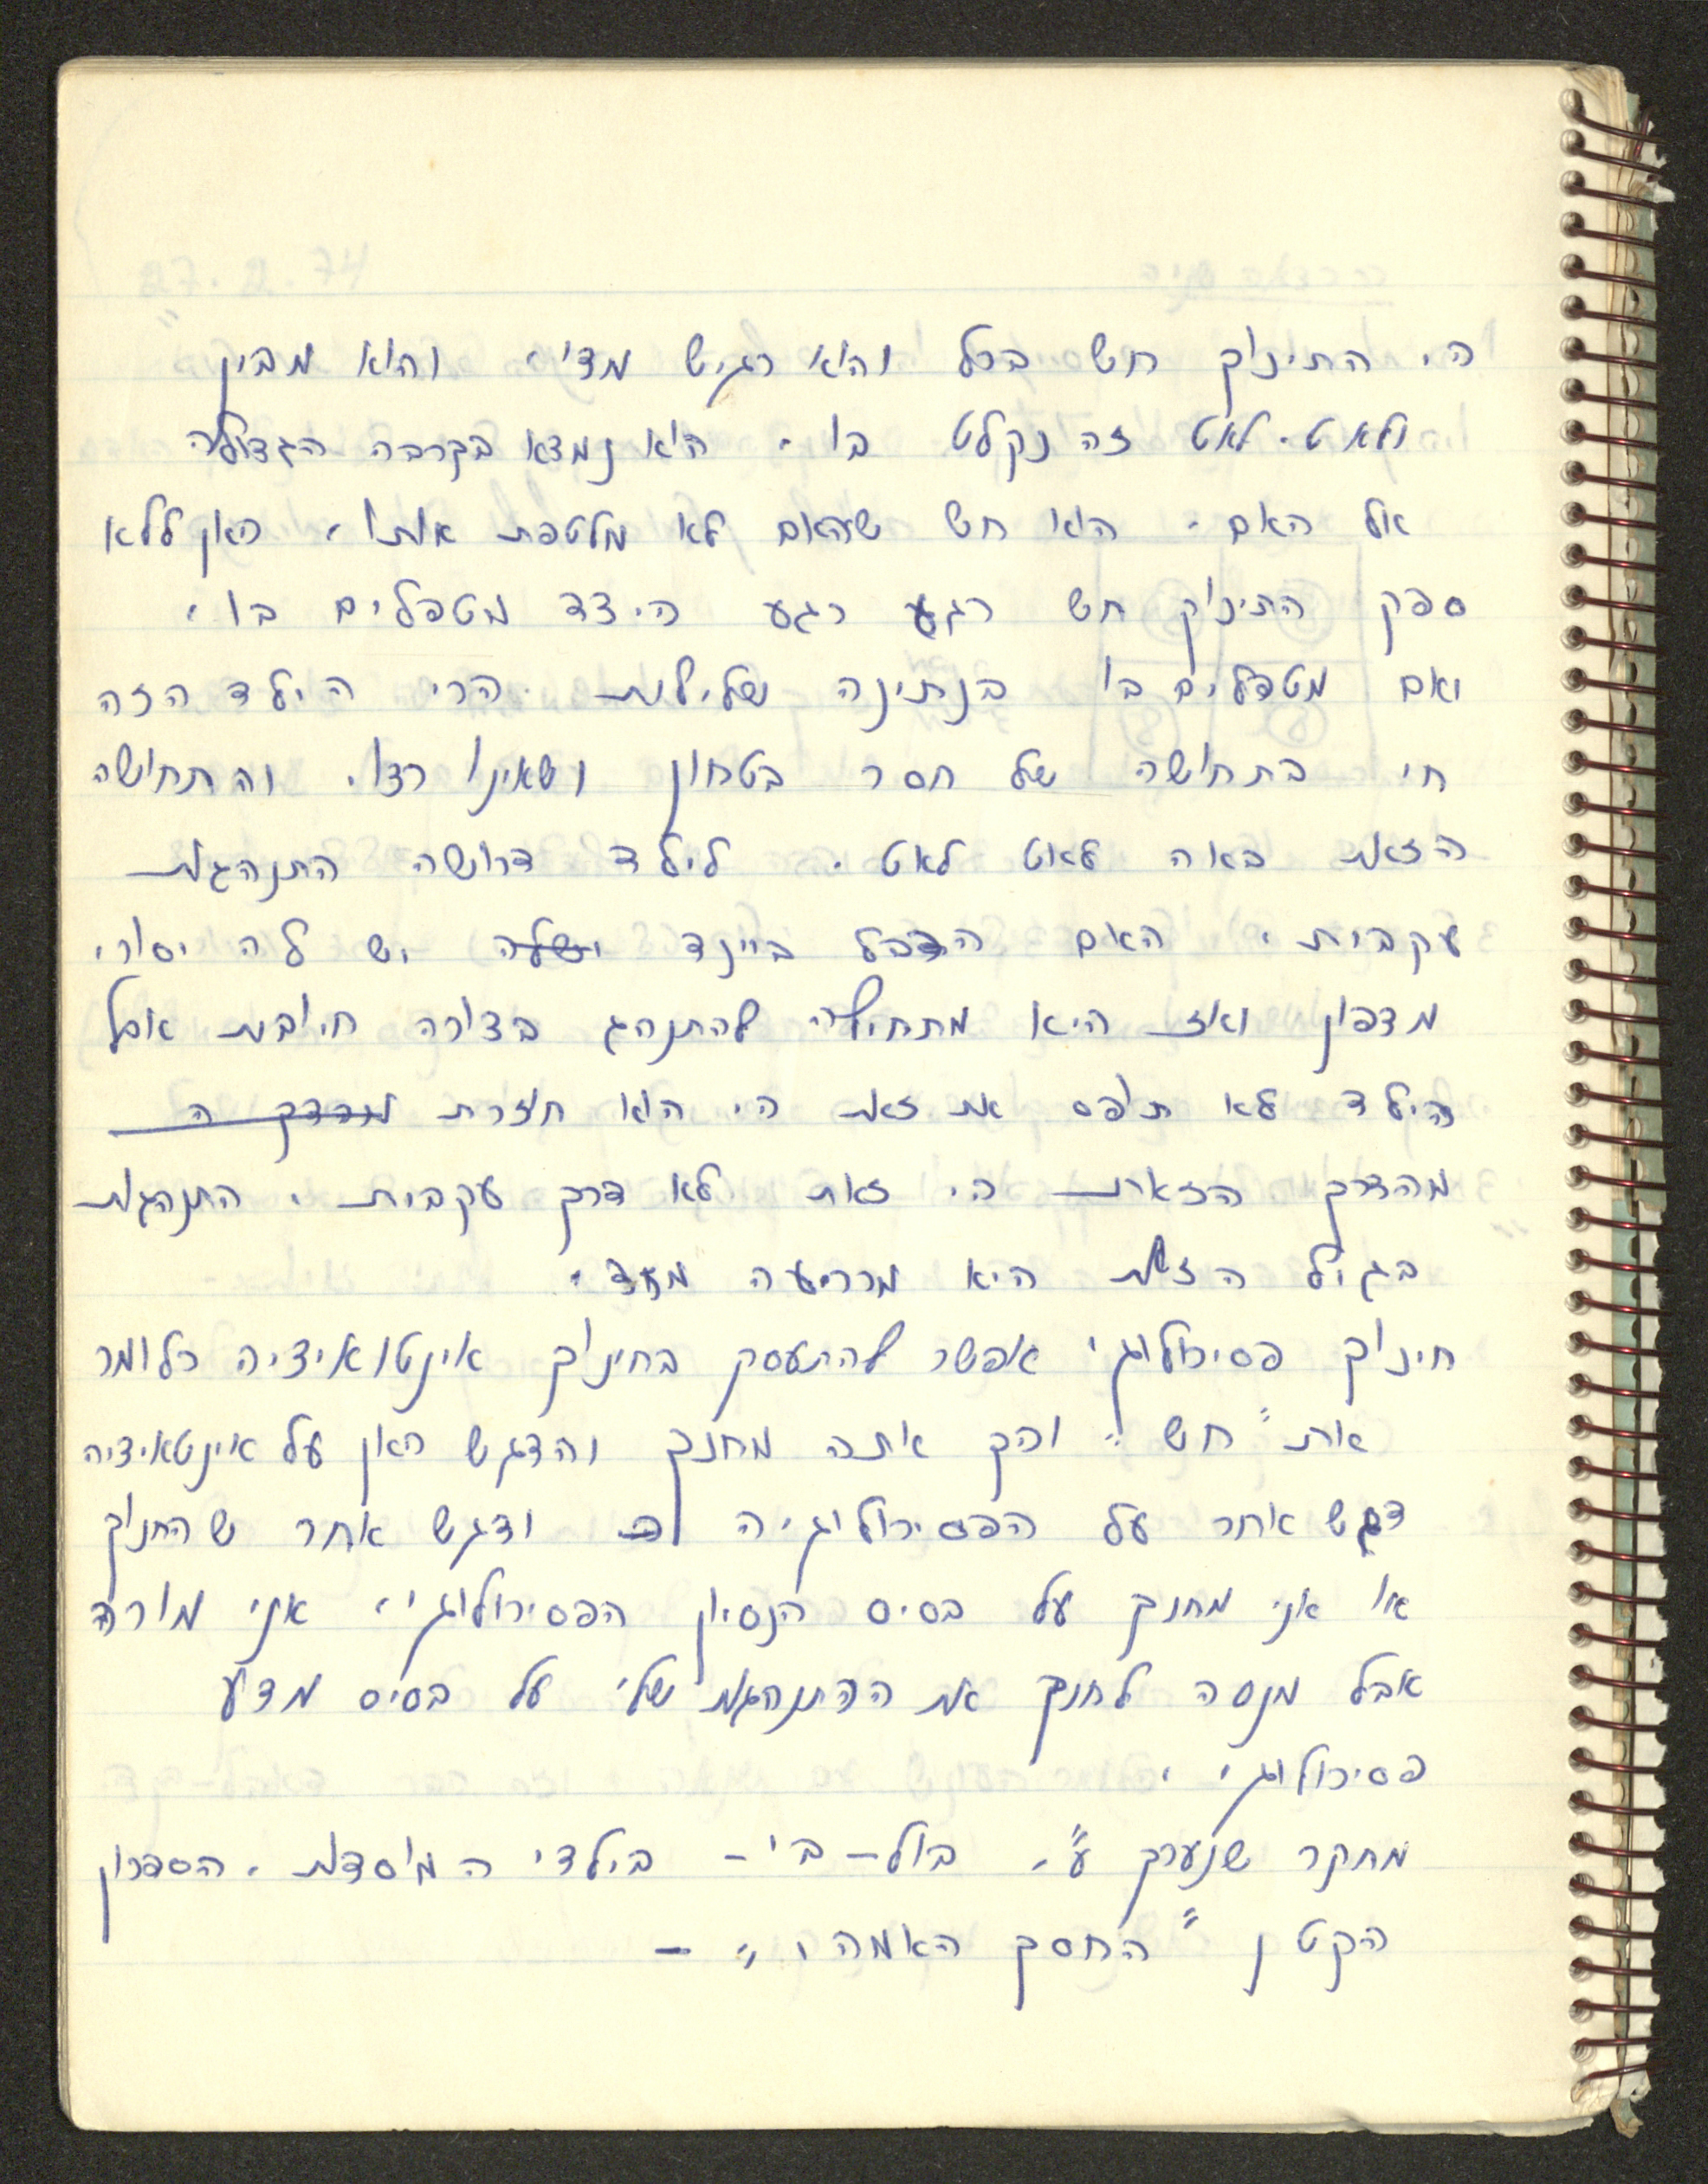 כי התינוק חש בכל והוא רגיש מדי. והוא מבין
ולאט. לאט זה נקלט בו. הוא נמצא בקרבה הגדולה
אל האם. הוא חש שהאם לא מלטפת אותו. כאן ללא
ספק התינוק חש רגע רגע כיצד מטפלים בו.
ואם מטפלים בו בנתינה שלילות הרי הילד הזה
חי בתחושה של חסר בטחון ושאינו רצוי. והתחושה
הזאת באה לאט לאט. לילד דרושה התנהגות
עקבית. האם הדבל ביינד יש לה יסורי
מצפון ואז היא מתחילה להתנהג בצורה חיובית אבל
הילד לא תופס את זאת כי הוא חוזרת
מהדרך הזאת כי זאת לא דרך עקבית. התנהגות
בגיל הזאת היא מכריעה מאד.
חינוך פסיכולוגי אפשר להתעסק בחינוך אינטואיציה כלומר
את "חש" וכך אתה מחנך והדגש כאן על אינטאיציה
דגש אחר על הפסיכולוגיה ודגש אחר שהחנוך
או אני מחנך על בסיס הנסיון הפסיכולוגי. אני מורה
אבל מנסה לחנך את ההתנהגות שלי על בסיס מדע
פסיכולוגי.
מחקר שנערך ע"י בול-בי- בילדי המוסדות. הספרון
הקטן "החסך האמהי" -